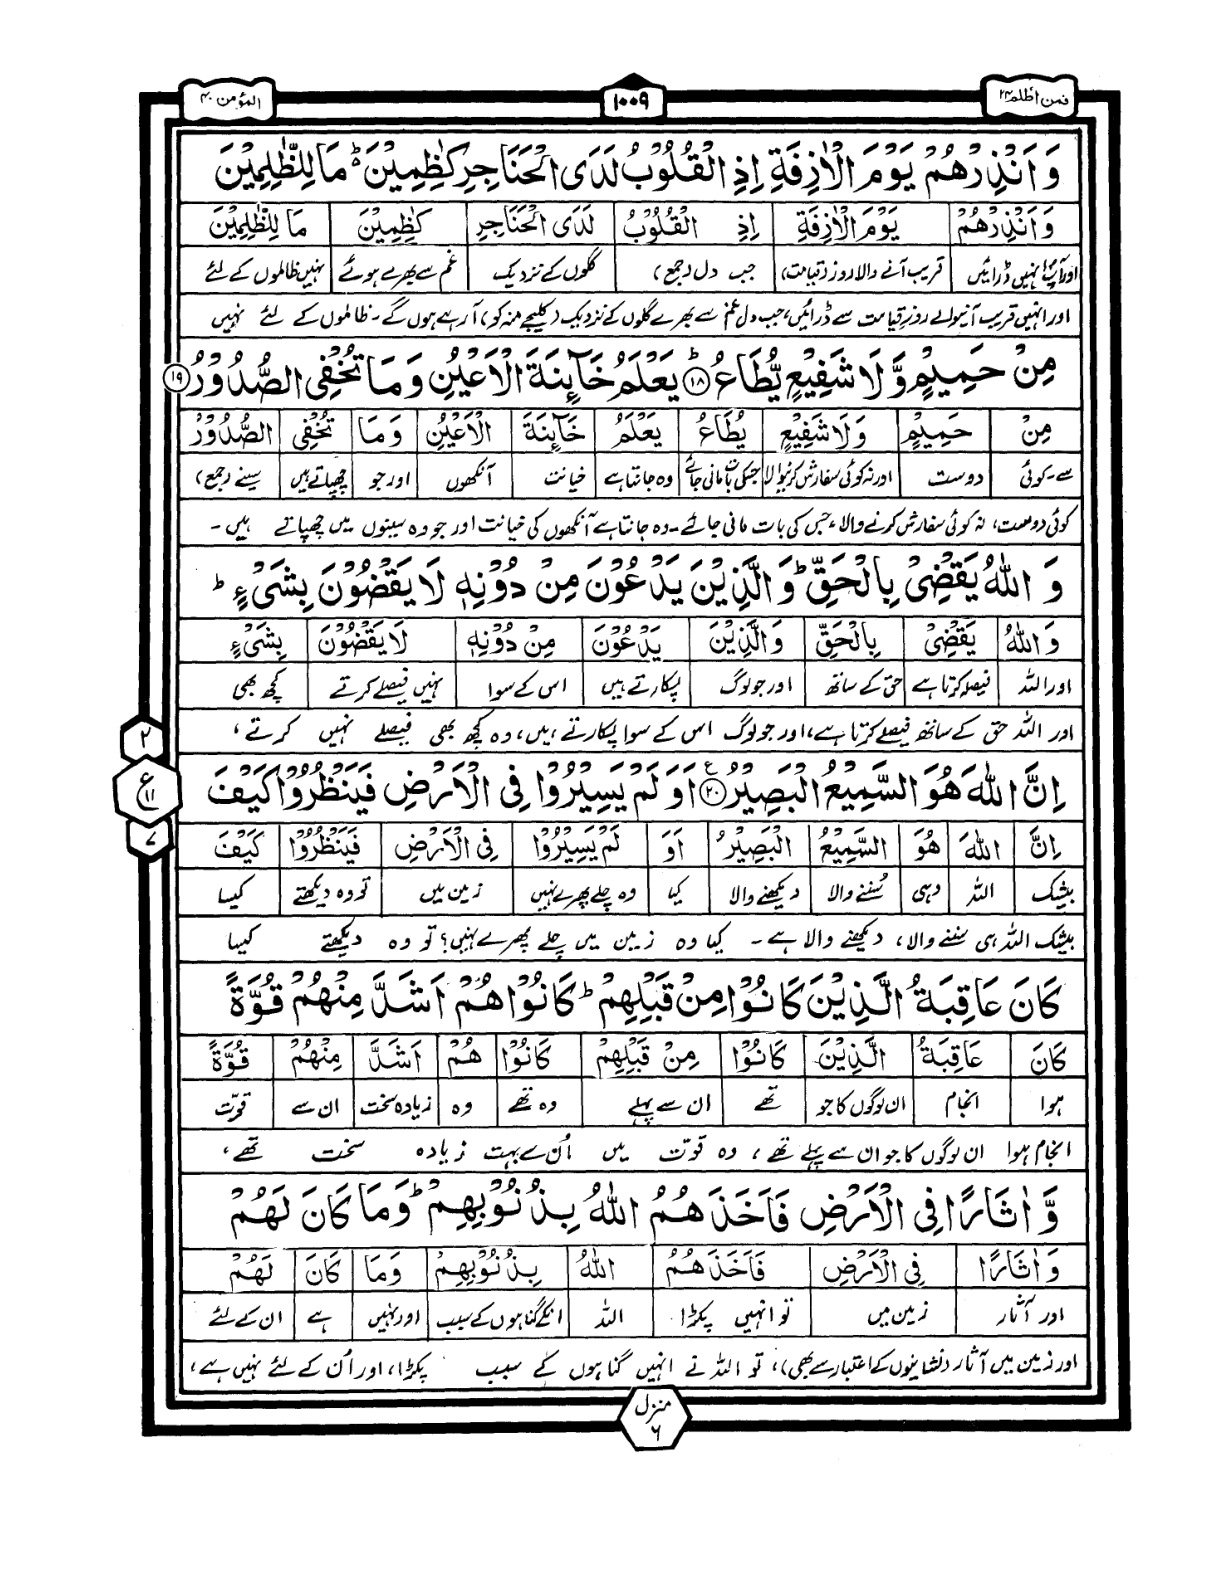 المؤمن ۴۰
۱۰۰۹
فمن اظلم ۲۴
وَاَنْذِرْهُمْ يَوْمَ الْاٰزِفَةِ اِذِ الْقُلُوْبُ لَدَى الْحَنَاجِرِ كٰظِمِيْنَ ؕ مَا لِلظّٰلِمِيْنَ
وَاَنْذِرْهُمْ يَوْمَ الْاٰزِفَةِ اِذِ الْقُلُوْبُ لَدَى الْحَنَاجِرِ كٰظِمِيْنَ مَا لِلظّٰلِمِيْنَ
اور آپؐ انہیں ڈرائیں قریب آنے والا روز (قیامت) جب دل (جمع) گلوں کے نزدیک غم سے بھرے ہوئے نہیں ظالموں کے لئے
اور انہیں قریب آنیوالے روزِ قیامت سے ڈرائیں، جب دل غم سے بھرے گلوں کے نزدیک (کلیجے منہ کو) آ رہے ہوں گے۔ ظالموں کے لئے نہیں
مِنْ حَمِيْمٍ وَّلَا شَفِيْعٍ يُّطَاعُ ؕ ۱۸ يَعْلَمُ خَآئِنَةَ الْاَعْيُنِ وَمَا تُخْفِى الصُّدُوْرُ ۱۹
مِنْ حَمِيْمٍ وَلَا شَفِيْعٍ يُطَاعُ يَعْلَمُ خَآئِنَةَ الْاَعْيُنِ وَمَا تُخْفِى الصُّدُوْرُ
سے۔کوئی دوست اور نہ کوئی سفارش کرنیوالا جسکی بات مانی جائے وہ جانتا ہے خیانت آنکھوں اور جو چھپاتے ہیں سینے (جمع)
کوئی دوست، نہ کوئی سفارش کرنے والا، جس کی بات مانی جائے۔ وہ جانتا ہے آنکھوں کی خیانت اور جو وہ سینوں میں چھپاتے ہیں۔
وَاللّٰهُ يَقْضِىْ بِالْحَقِّ ؕ وَالَّذِيْنَ يَدْعُوْنَ مِنْ دُوْنِهٖ لَا يَقْضُوْنَ بِشَىْءٍ ؕ
وَاللّٰهُ يَقْضِىْ بِالْحَقِّ وَالَّذِيْنَ يَدْعُوْنَ مِنْ دُوْنِهٖ لَا يَقْضُوْنَ بِشَىْءٍ
اور اللہ فیصلہ کرتا ہے حق کے ساتھ اور جو لوگ پکارتے ہیں اس کے سوا نہیں فیصلے کرتے کچھ بھی
اور اللہ حق کے ساتھ فیصلے کرتا ہے، اور جو لوگ اس کے سوا پکارتے ہیں، وہ کچھ بھی فیصلے نہیں کرتے،
اِنَّ اللّٰهَ هُوَ السَّمِيْعُ الْبَصِيْرُ ۲۰ ع اَوَلَمْ يَسِيْرُوْا فِى الْاَرْضِ فَيَنْظُرُوْا كَيْفَ
۲
ع
۱۱
۷
اِنَّ اللّٰهَ هُوَ السَّمِيْعُ الْبَصِيْرُ اَوَ لَمْ يَسِيْرُوْا فِى الْاَرْضِ فَيَنْظُرُوْا كَيْفَ
بیشک اللہ وہی سُننے والا دیکھنے والا کیا وہ چلے پھرے نہیں زمین میں تو وہ دیکھتے کیسا
بیشک اللہ ہی سننے والا، دیکھنے والا ہے۔ کیا وہ زمین میں چلے پھرے نہیں؟ تو وہ دیکھتے کیسا
كَانَ عَاقِبَةُ الَّذِيْنَ كَانُوْا مِنْ قَبْلِهِمْ ؕ كَانُوْا هُمْ اَشَدَّ مِنْهُمْ قُوَّةً
كَانَ عَاقِبَةُ الَّذِيْنَ كَانُوْا مِنْ قَبْلِهِمْ كَانُوْا هُمْ اَشَدَّ مِنْهُمْ قُوَّةً
ہوا انجام ان لوگوں کا جو تھے ان سے پہلے وہ تھے وہ زیادہ سخت ان سے قوت
انجام ہوا ان لوگوں کا جو ان سے پہلے تھے، وہ قوت میں اُن سے بہت زیادہ سخت تھے،
وَّاٰثَارًا فِى الْاَرْضِ فَاَخَذَهُمُ اللّٰهُ بِذُنُوْبِهِمْ ؕ وَمَا كَانَ لَهُمْ
وَاٰثَارًا فِى الْاَرْضِ فَاَخَذَهُمُ اللّٰهُ بِذُنُوْبِهِمْ وَمَا كَانَ لَهُمْ
اور آثار زمین میں تو انہیں پکڑا اللہ انکے گناہوں کے سبب اور نہیں ہے ان کے لئے
اور زمین میں آثار (نشانیوں کے اعتبار سے بھی)، تو اللہ نے انہیں گناہوں کے سبب پکڑا، اور اُن کے لئے نہیں ہے،
منزل ۶